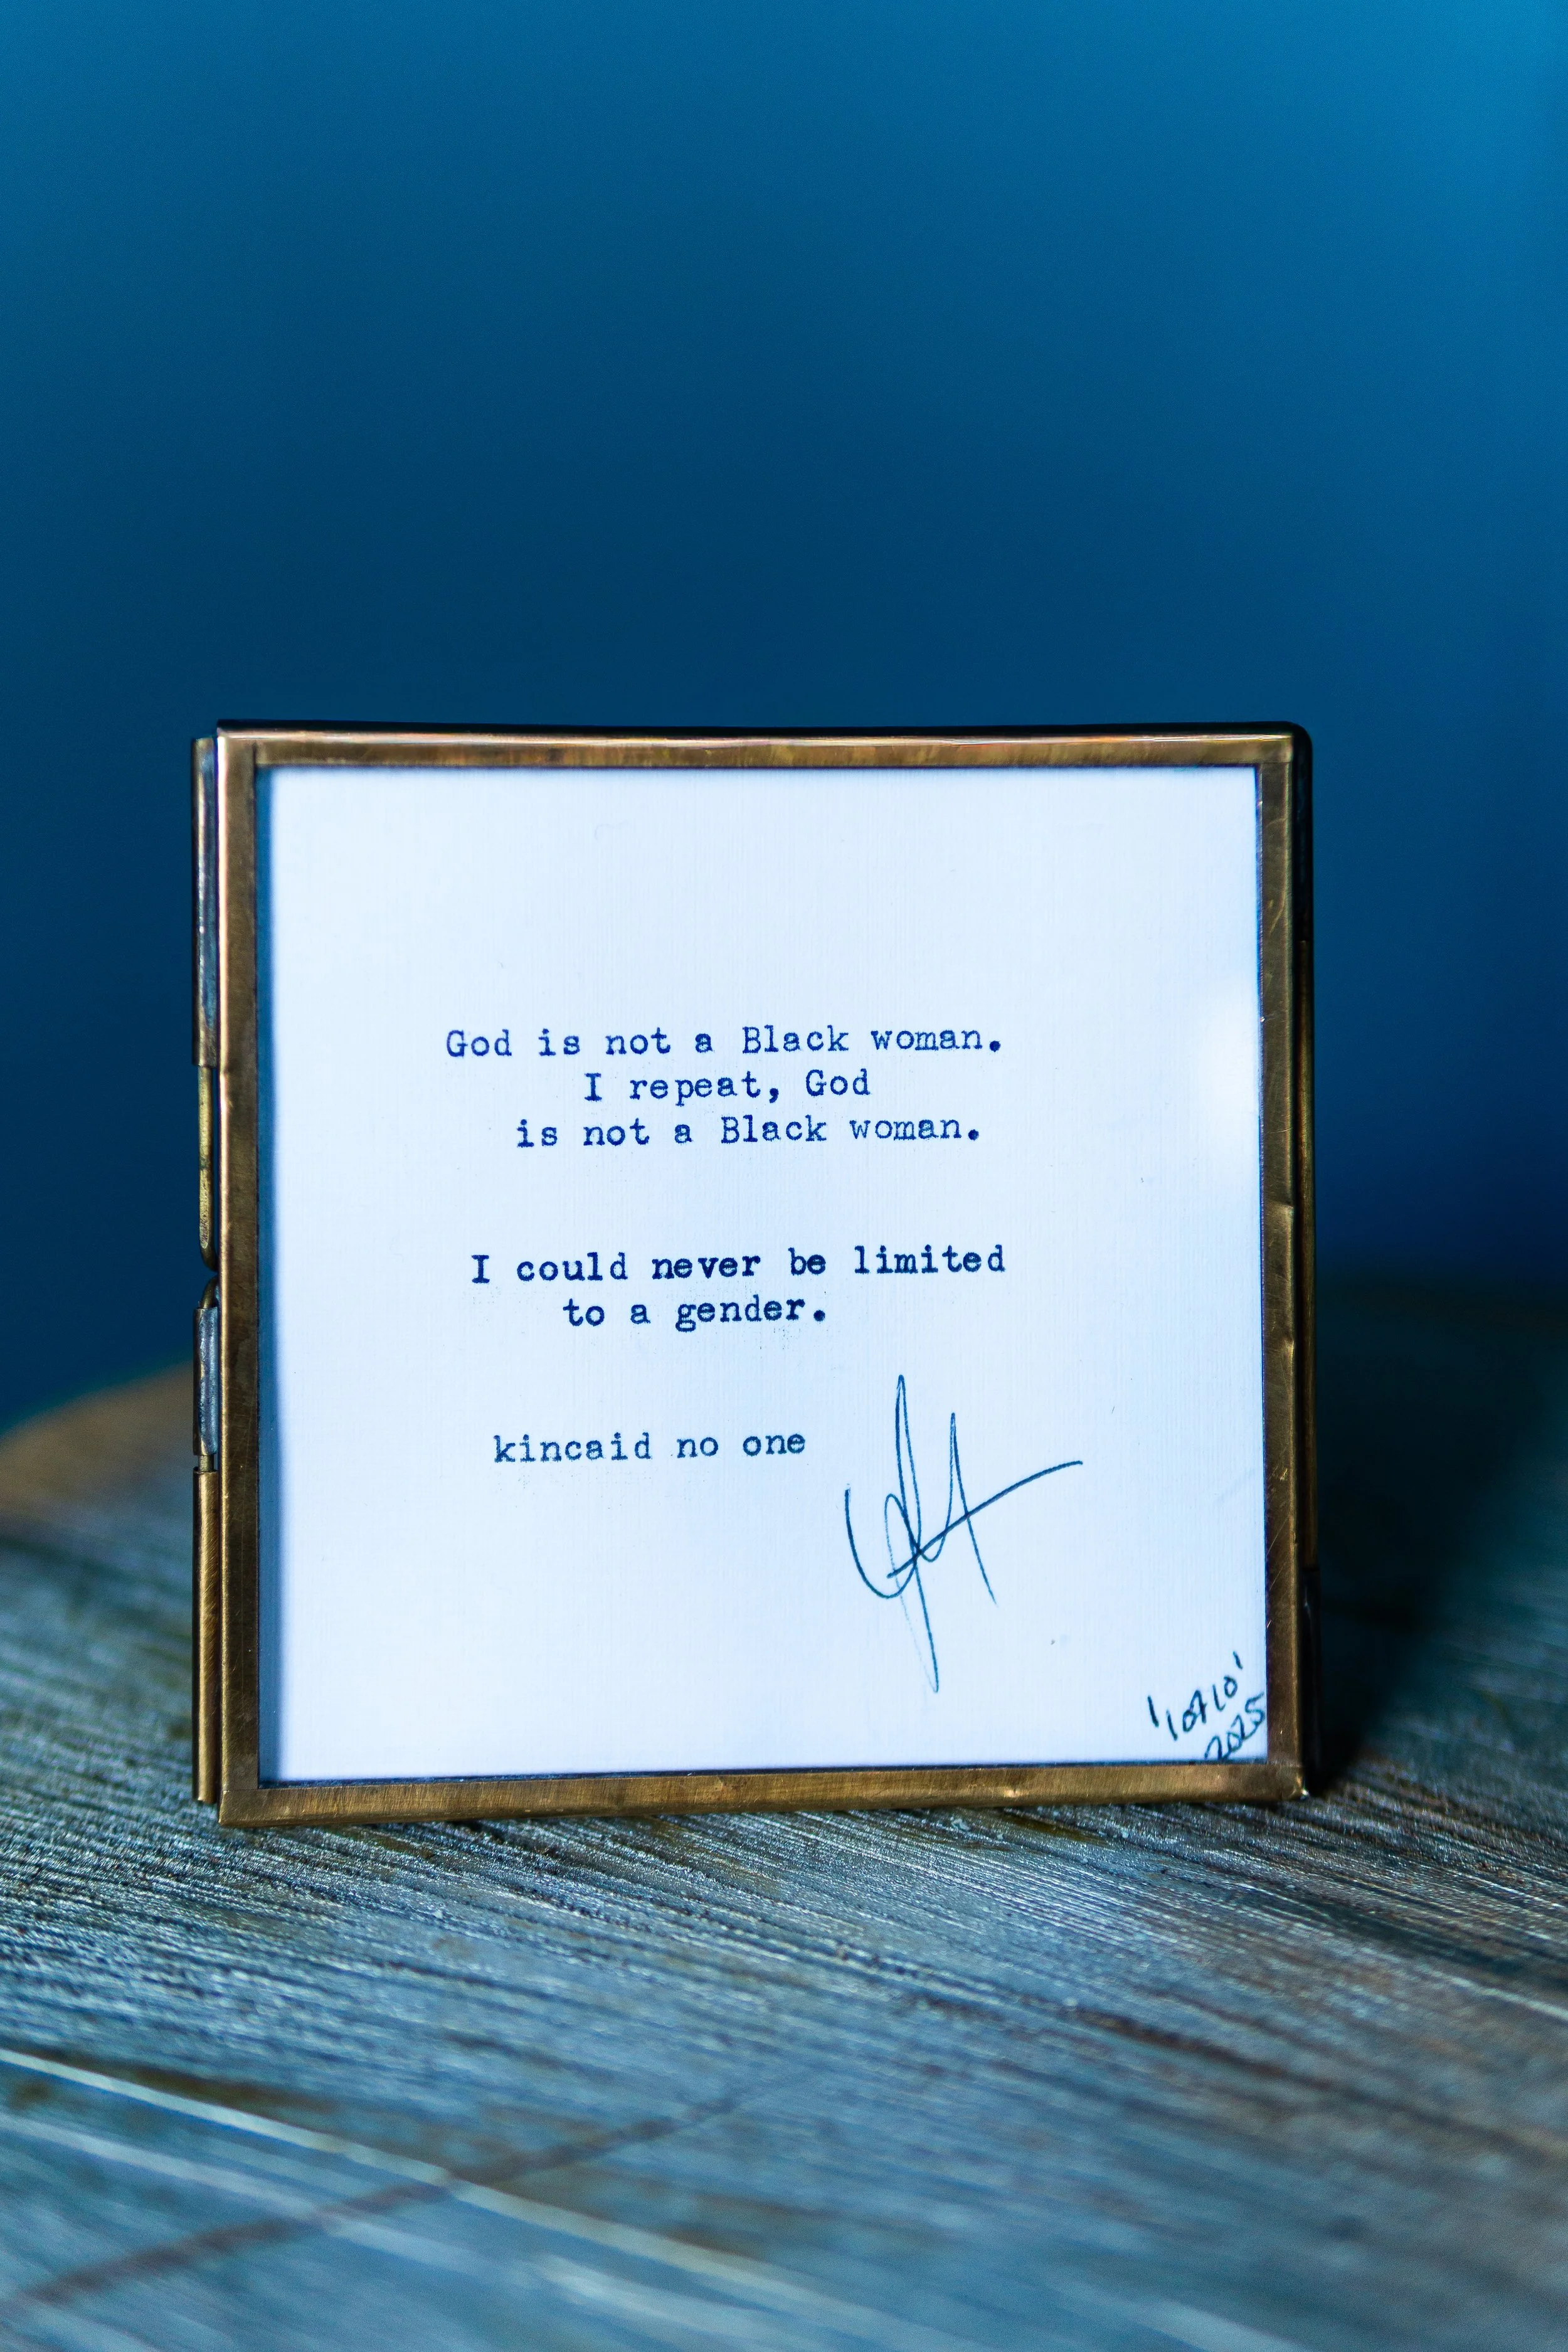 God is not a Black woman.
I repeat, God
is not a Black woman.
I could never be limited
to a gender.
kincaid no one
2025